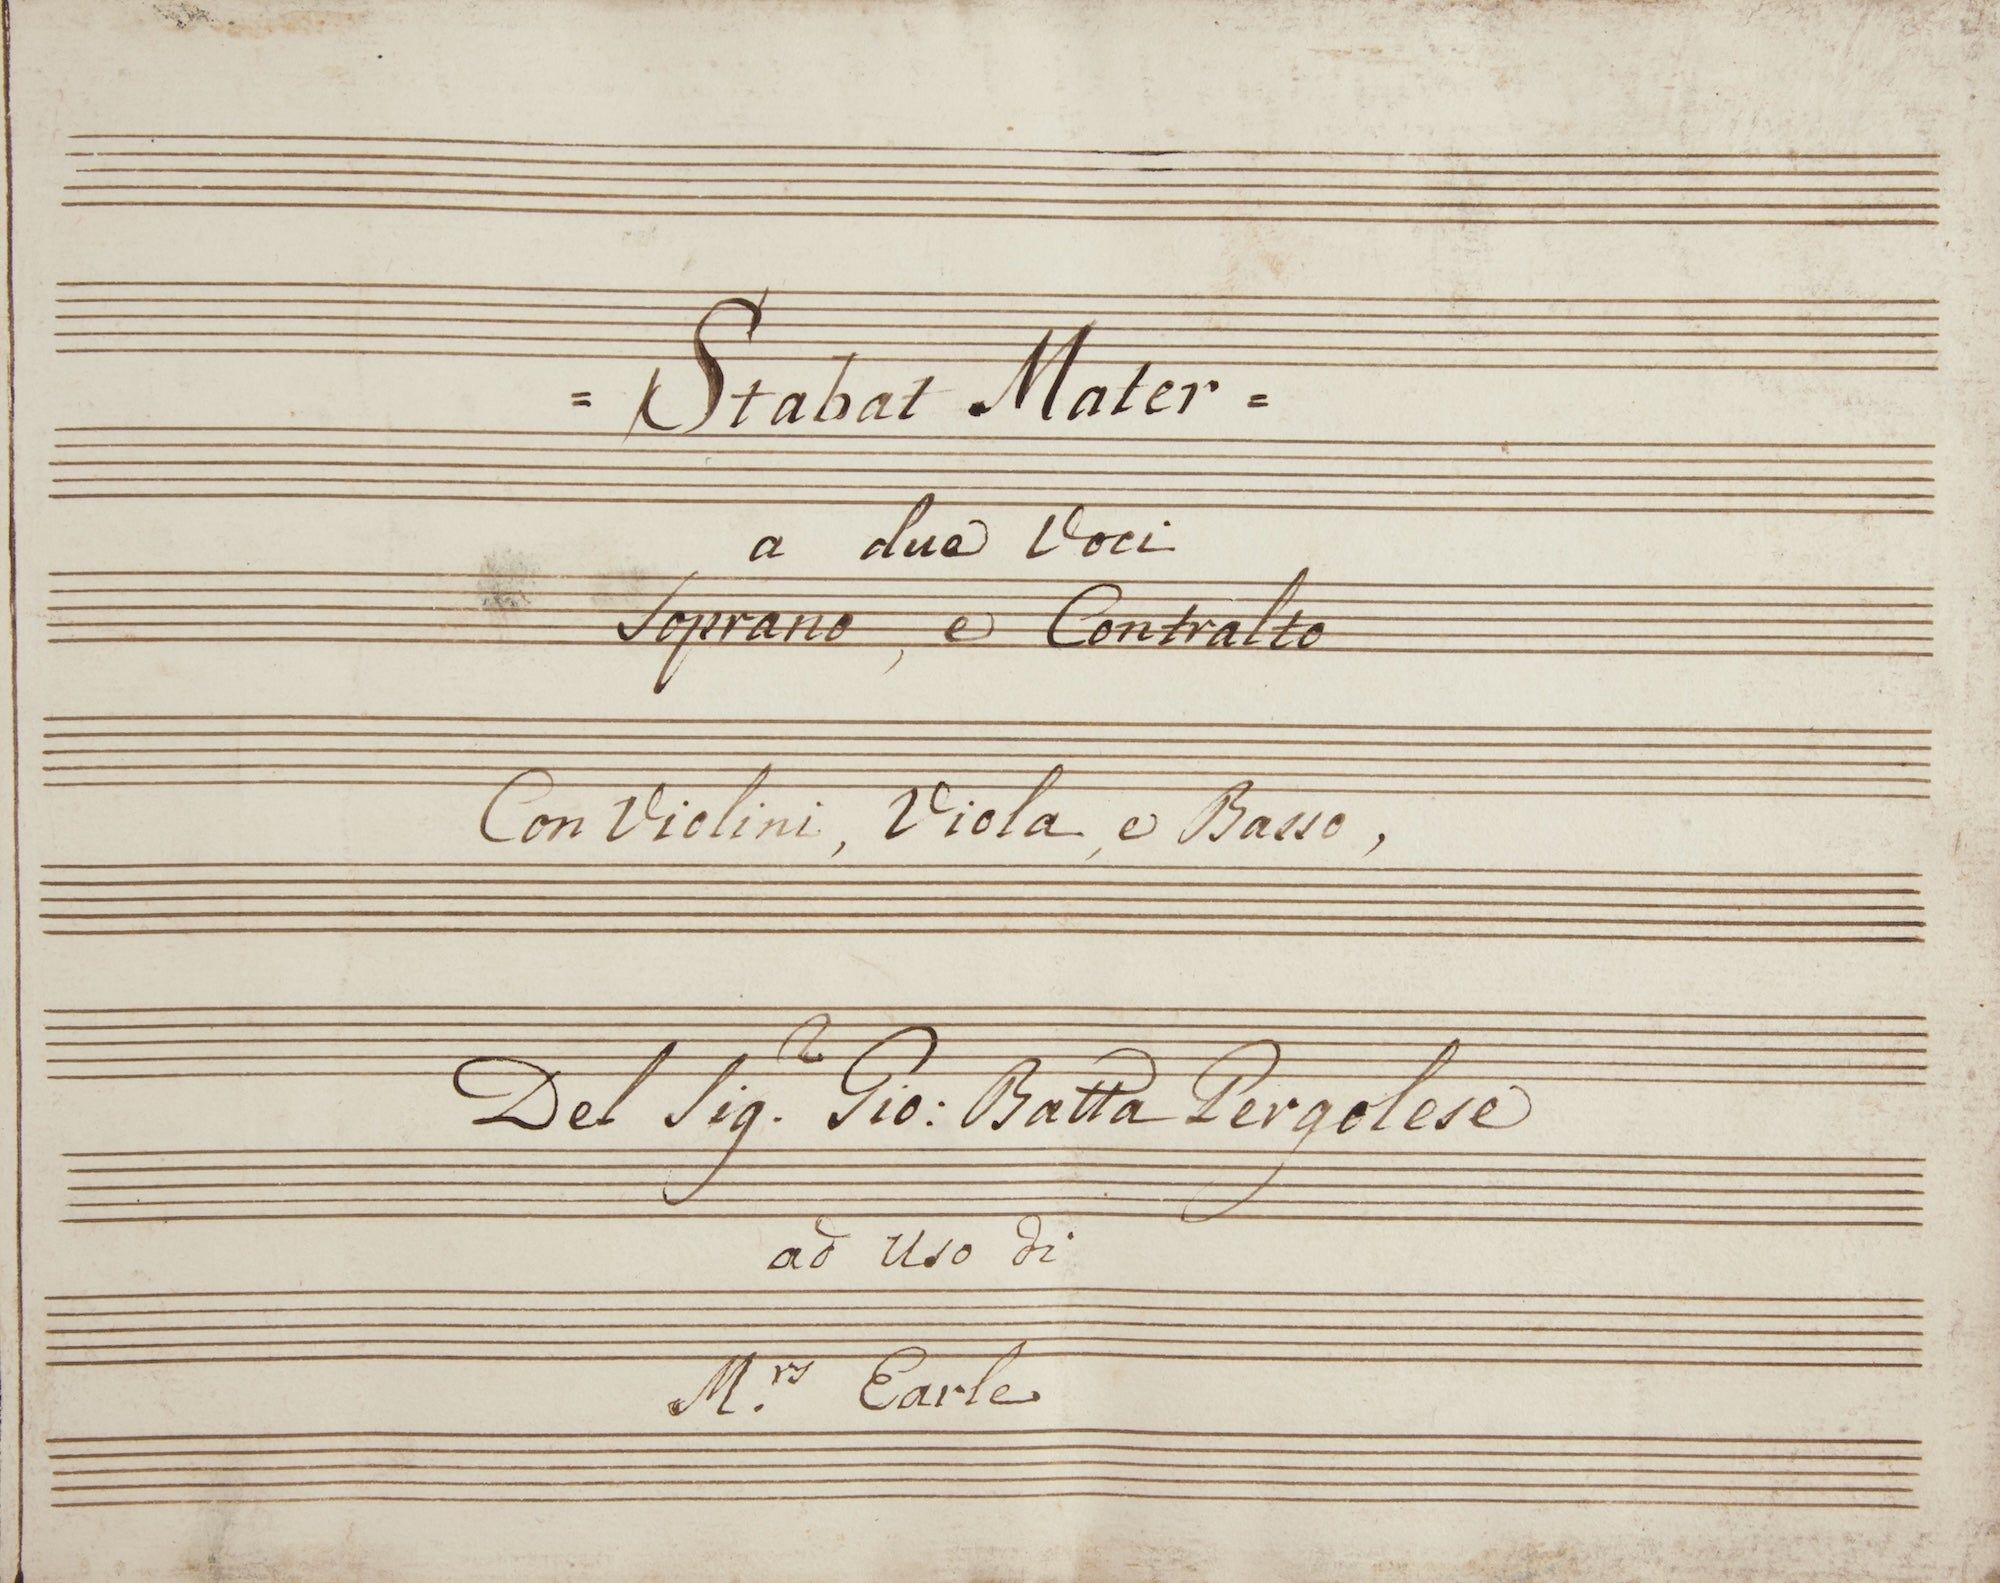 = Stabat Mater =
a due Voci
Soprano, e Contralto
Con Violini, Viola, e Basso,
Del Sig.r Gio: Batta Pergolese
ad Uso di
M.rs Earle